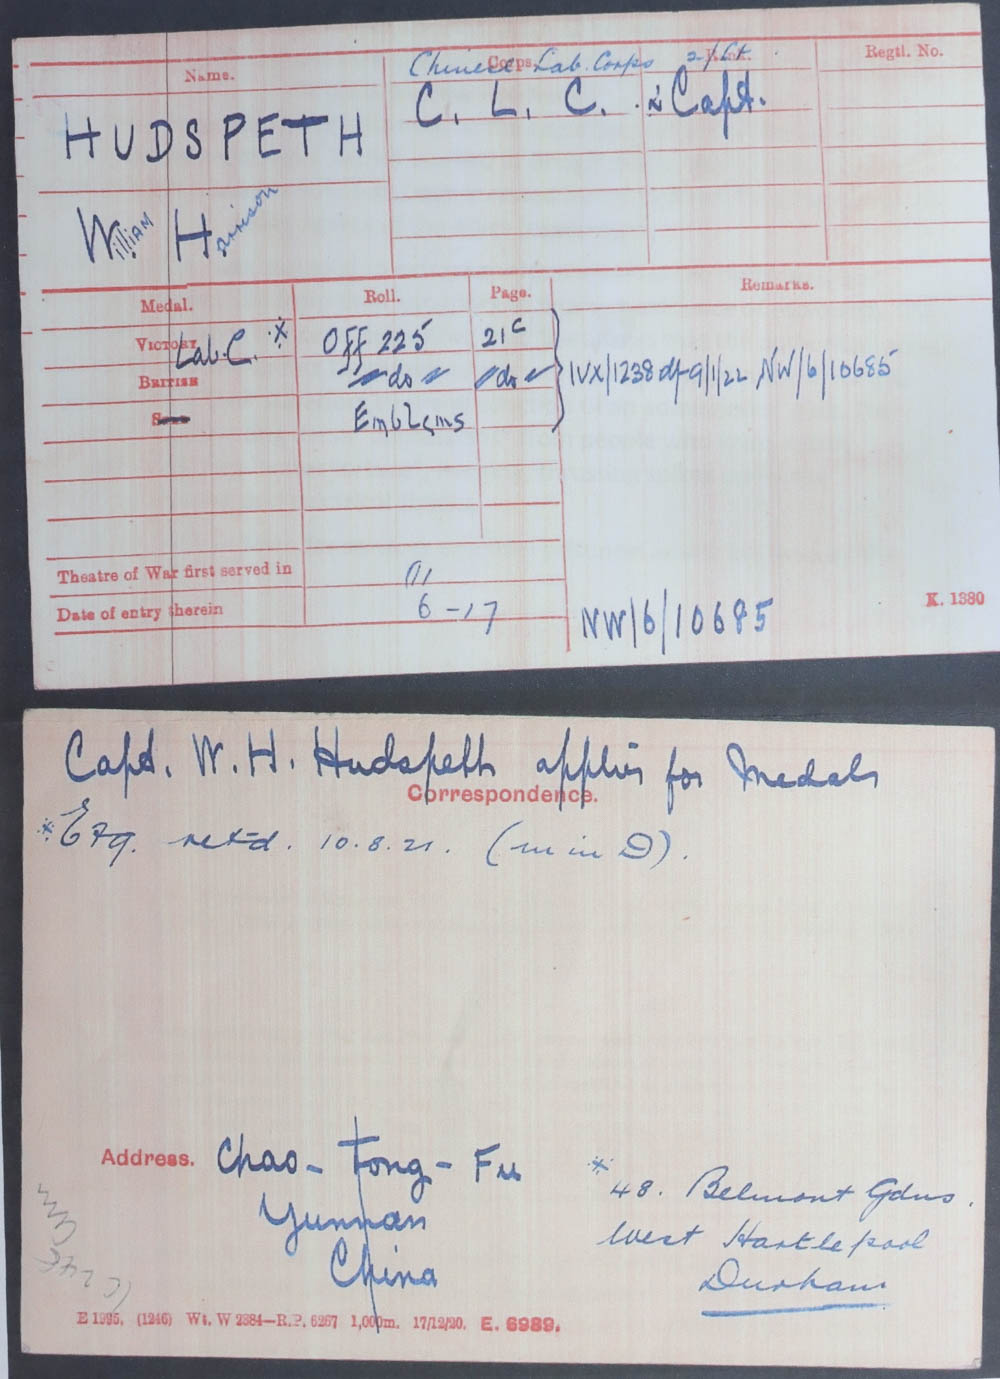 Name.
Corps.
Rank.
Regtl. No.
Chinese Lab. Corps 2/Lt
C. L. C. Capt.
HUDSPETH
William Harrison
Medal.
Roll.
Page.
Remarks.
VICTORY Lab.C. * Off 225 21c
BRITISH do do
IVX/1238 df 9/1/22 NW/6/10685
Emblems
Theatre of War first served in
Date of entry therein 6-17
NW/6/10685
K. 1380
Capt. W. H. Hudspeth applies for Medals
Correspondence.
* E79. retd. 10.8.21. (m in D).
Address. Chao-Tong-Fu
Yunnan
China
* 48. Belmont Gdns.
West Hartlepool
Durham
E 1995. (1246) Wt. W 2384—R.P. 6267 1,000m. 17/12/20. E. 6989.